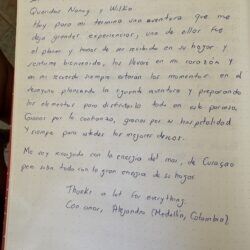 Queridos Nancy y Wilko
Hoy para mi termina una aventura que me
deja grandes experiencias, una de ellas fue
el placer y honor de ser recibido en su hogar y
sentirme bienvenido, los llevare en mi corazón y
en mi recuerdo siempre estaran los momentos en el
desayuno planeando la siguiente aventura y preparando
los elementos para disfrutarlo todo en este paraiso.
Gracias por la confianza, gracias por su hospitalidad
y siempre para ustedes los mejores deseos.
Me voy recargado con la energia del mar, de Curaçao
pero sobre todo con la gran energia de su hogar.
Thanks a lot for everything.
Con amor, Alejandro (Medellín, Colombia)